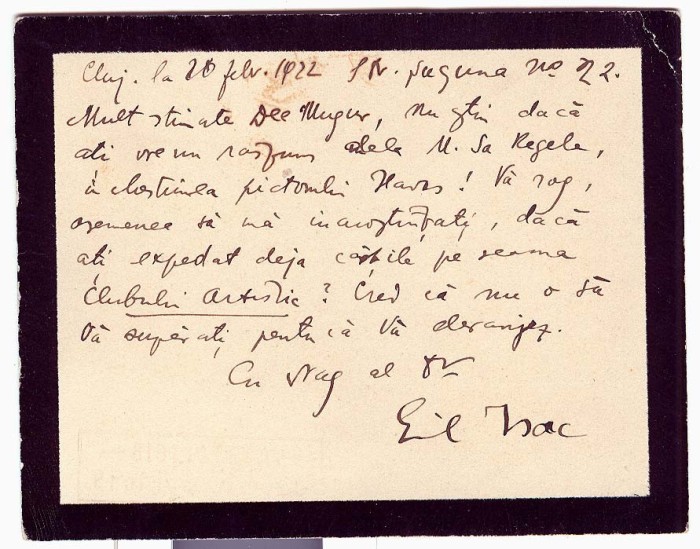 Cluj. la 20 febr. 1922 Str. Șaguna No 22.
Mult stimate Dle Mugur, nu știu dacă
ați vreun raspuns dela M. Sa Regele,
în chestiunea pictorului Havas! Vă rog,
asemenea să mă incunoștiințați, dacă
ați expedat deja cărțile pe seama
Clubului Artistic? Cred că nu o să
Vă supărați pentru că Vă deranjez.
Cu drag al Dv
Emil Isac